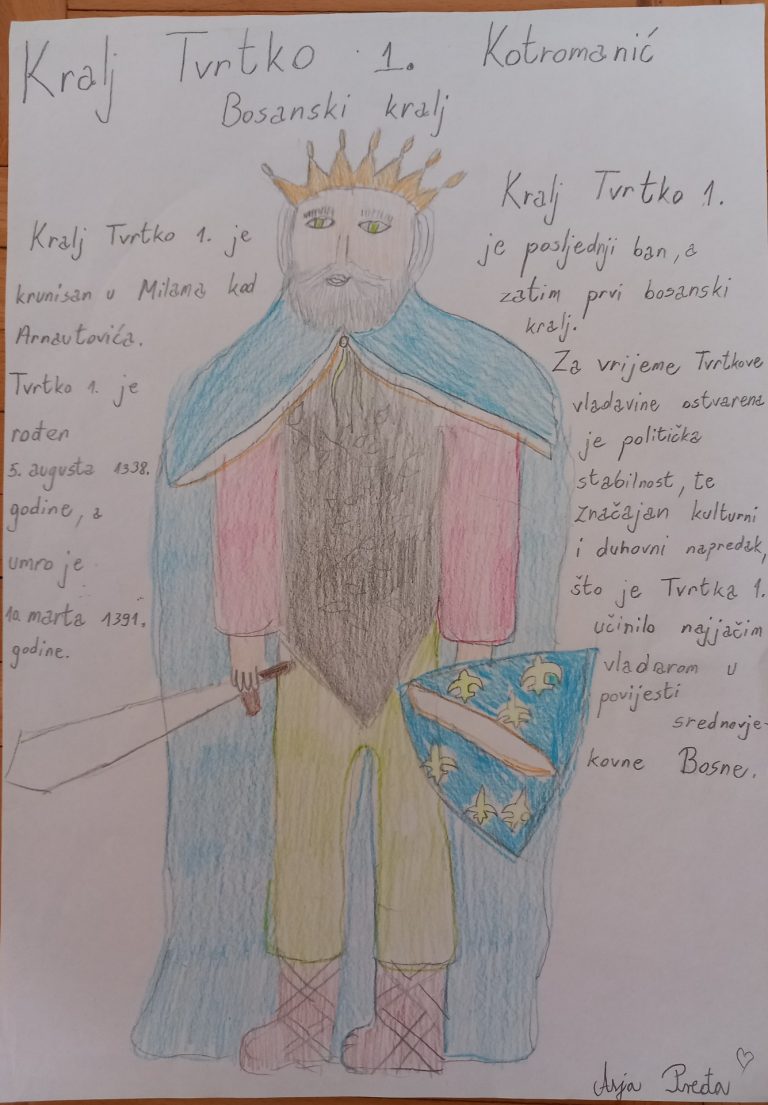 Kralj Tvrtko 1. Kotromanić
Bosanski kralj
Kralj Tvrtko 1. je
krunisan u Milama kod
Arnautovića.
Tvrtko 1. je
rođen
5. augusta 1338.
godine, a
umro je
10. marta 1391.
godine.
Kralj Tvrtko 1.
je posljednji ban, a
zatim prvi bosanski
kralj.
Za vrijeme Tvrtkove
vladavine ostvarena
je politička
stabilnost, te
značajan kulturni
i duhovni napredak,
što je Tvrtka 1.
učinilo najjačim
vladarom u
povijesti
srednovje-
kovne Bosne.
Asja Pređa